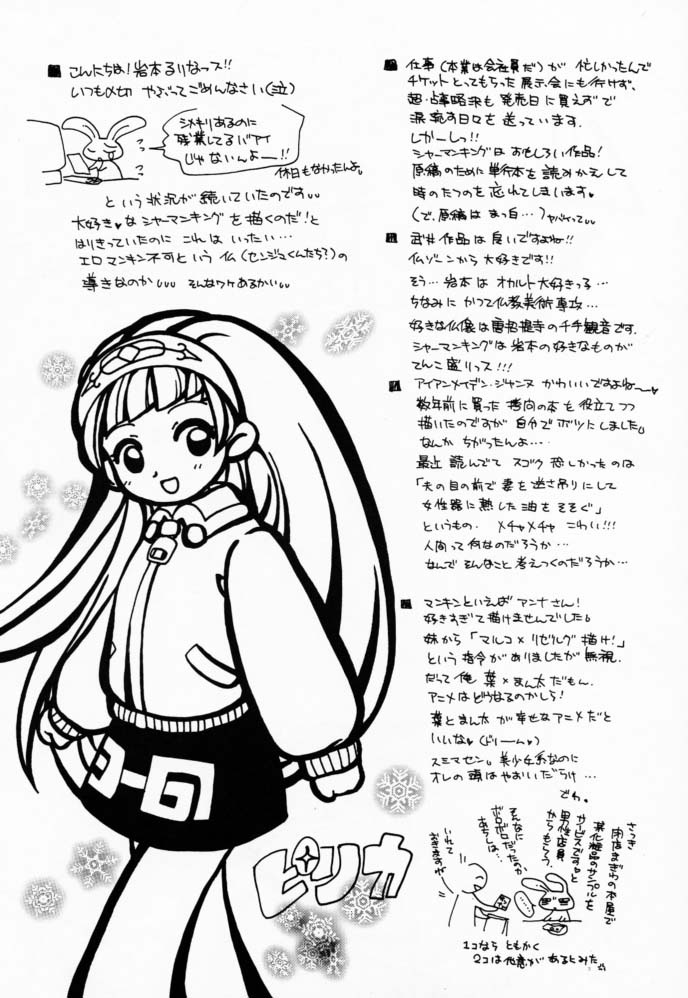 こんにちは！岩本るりなっス!!
いつも〆切 やぶってごめんなさい(泣)
シメキリあるのに
残業してるバアイ
じゃないんよー―!!
休日もなかったんよ。
という状況が続いていたのです
大好き♥なシャーマンキングを描くのだ！と
はりきっていたのに これはいったい…
エロマンキン不可という仏(センジュくんたち？)の
導きなのか そんなワケあるかい
ピリカ
仕事(本業は会社員だ)が 忙しかったんで
チケットとってもらった展示会にも行けず、
超・占事略決も 発売日に買えずで
涙 する日々を 送っています．
しかーしっ!!
シャーマンキングは おもしろい作品！
原稿のために 単行本を 読みかえして
時のたつのを 忘れてしまいます♥
(で、原稿は まっ白…)ヤバイって
武井作品は良いですよね!!
仏ゾーンから 大好きです!!
そう…岩本は オカルト大好きっ子…
ちなみに かつて仏教美術専攻…
好きな仏像は唐招提寺の千手観音です．
シャーマンキングは岩本の好きなものが
てんこ盛りっス!!!
アイアンメイデン・ジャンヌ かわいいですよね〜♥
数年前に買った 拷問の本を 役立てつつ
描いたのですが 自分で ボツにしました。
なんか ちがったんよ…．
最近 読んでて スゴク 恐しかったのは
「夫の目の前で 妻を 逆さ吊りにして
女性器に 熱した 油を そそぐ」
というもの． メチャメチャ こわい!!!
人間って 何なのだろうか…
なんで そんなこと 考えつくのだろうか…
マンキンといえば アンナさん！
好きすぎて描けませんでした。
妹から「マルコ×リゼルグ 描け！」
という指令が ありましたが 無視．
だって俺 葉×まん太だもん．
アニメは どうなるのかしら！
葉とまん太 が 幸せなアニメだと
いいな♥(ドリーム♥)
スミマセン。美少女系なのに
オレの頭は やおいだらけ…
でわ。
さっき
閉店まぎわの本屋で
サービスですと
男性店員
からもらう．
そんなに
ボロボロだったのか
あちしは…
いれて
おきますが
1コなら ともかく
2コは他意が あるとみた。